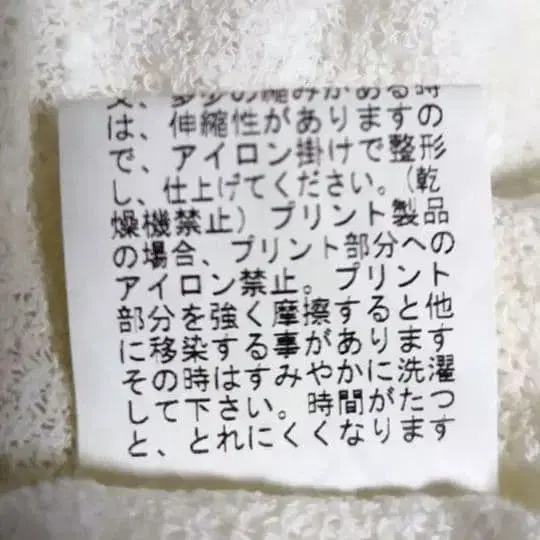 又、多少の縮みがある時
は、伸縮性がありますの
で、アイロン掛けで整形
し、仕上げてください。（乾
燥機禁止）プリント製品
の場合、プリント部分への
アイロン禁止。プリント
部分を強く摩擦すると他
に移染する事があります
その時はすみやかに洗濯
して下さい。時間がたつ
と、とれにくくなります